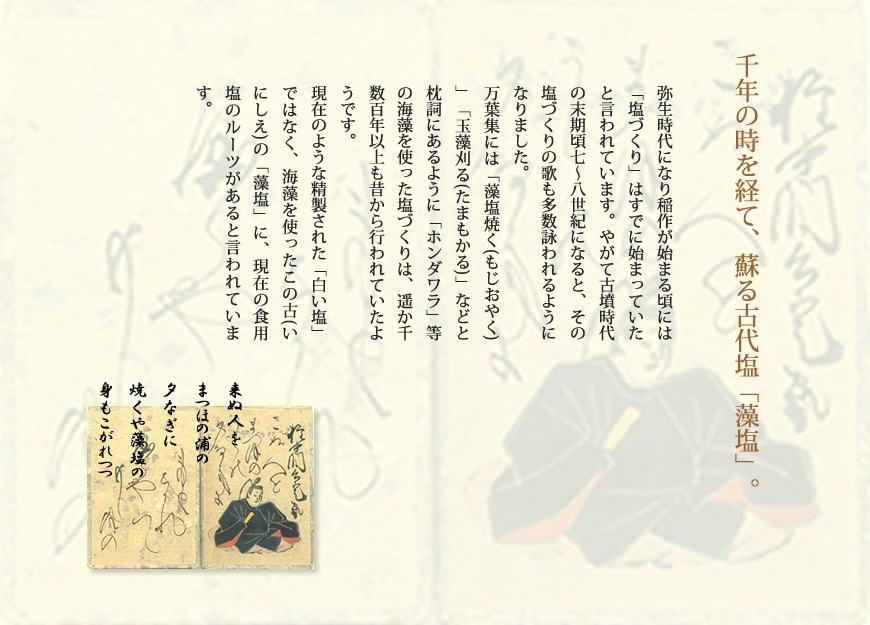 千年の時を経て、蘇る古代塩「藻塩」。
弥生時代になり稲作が始まる頃には
「塩づくり」はすでに始まっていた
と言われています。やがて古墳時代
の末期頃七～八世紀になると、その
塩づくりの歌も多数詠われるように
なりました。
万葉集には「藻塩焼く(もじおやく)
」「玉藻刈る(たまもかる)」などと
枕詞にあるように「ホンダワラ」等
の海藻を使った塩づくりは、遥か千
数百年以上も昔から行われていたよ
うです。
現在のような精製された「白い塩」
ではなく、海藻を使ったこの古(い
にしえ)の「藻塩」に、現在の食用
塩のルーツがあると言われていま
す。
来ぬ人を
まつほの浦の
夕なぎに
焼くや藻塩の
身もこがれつつ